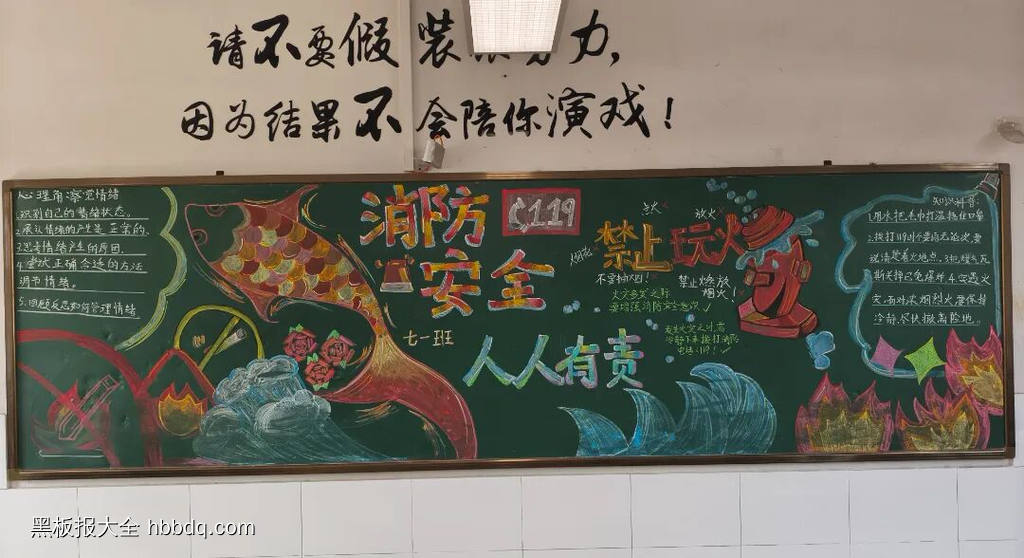 请不要假装很努力,
因为结果不会陪你演戏!
心理角:察觉情绪
1.识别自己的情绪状态。
2.承认情绪的产生是正常的.
3.思考情绪产生的原因.
4.尝试正确合适的方法
调节情绪。
5.回顾反思如何管理情绪
消防
安全
119
七一班
人人有责
禁止玩火
放火
禁止燃放
烟火!
知识科普:
1.用水把毛巾打湿捂住口鼻
2.拨打119时不要说无论次,要
说清楚着火地点.
火,面对火烟烈火要保持
冷静,尽快撤离险地。
黑板报大全 hbbdq.com